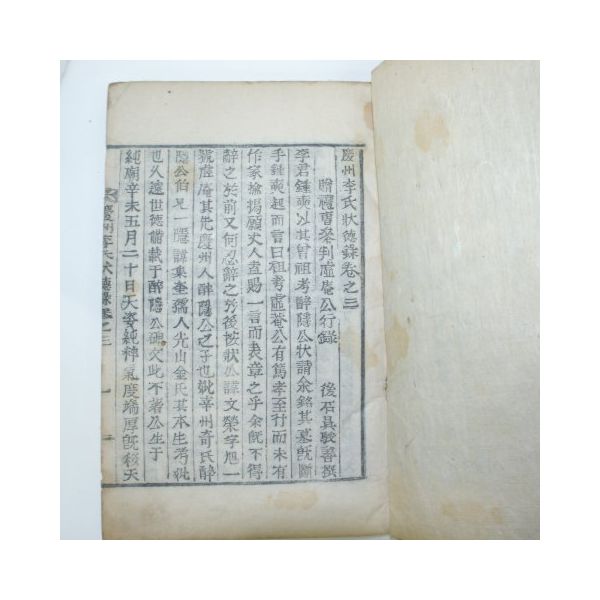 慶州李氏狀德錄卷之三
贈禮曹叅判虛庵公行錄
後石吳駿善撰
李君鍾奭以其曾祖考醉隱公狀請余銘其墓旣斷
手鍾奭起而言曰祖考虛菴公有篤孝至行而未有
作家揄揚願丈人直賜一言而表章之乎余旣不得
辭之於前又何忍辭之於後按狀公諱文榮字旭一
號虛庵其先慶州人醉隱公之子也妣幸州奇氏醉
隱公伯兄一隱諱集奎孺人光山金氏其本生考妣
也久遠世德備載于醉隱公碑文此不著公生于
純廟辛未五月二十日天姿純粹氣度端厚旣移天
慶州李氏狀德錄卷之三 一